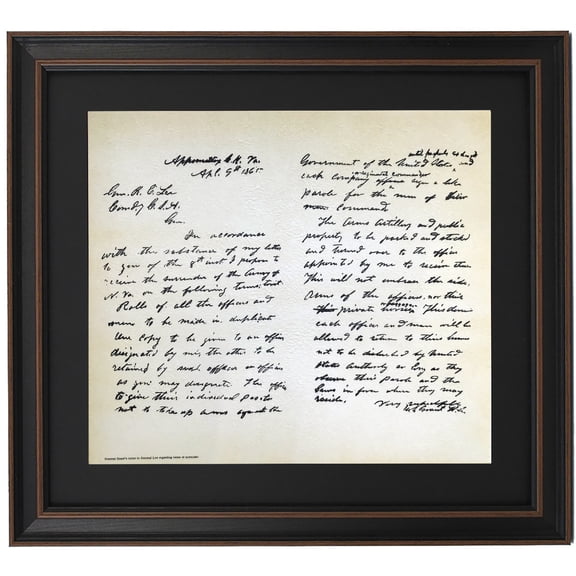 Appomattox C.H. Va.
Apl. 9th 1865
Gen. R. E. Lee
Comdg C.S.A.
Gen.
In accordance
with the substance of my letter
to you of the 8th inst. I propose to
receive the surrender of the Army of
N. Va. on the following terms: towit
Rolls of all the officers and
men to be made in duplicate
One copy to be given to an officer
designated by me, the other to be
retained by such officer or officers
as you may designate. The officers
to give their individual paroles
not to take up arms against the
until properly exchanged
Government of the United States and
or regimental commander
each company officer sign a like
parole for the men of their
command
The Arms Artillery and public
property to be parked and stacked
and turned over to the officer
appointed by me to receive them.
This will not embrace the side
Arms of the officers, nor their
private horses This done
each officer and man will be
allowed to return to their homes
not to be disturbed by United
States Authority so long as they
observe their parole and the
laws in force where they may
reside.
Very respectfully
U.S. Grant
General Grant's letter to General Lee regarding terms of surrender